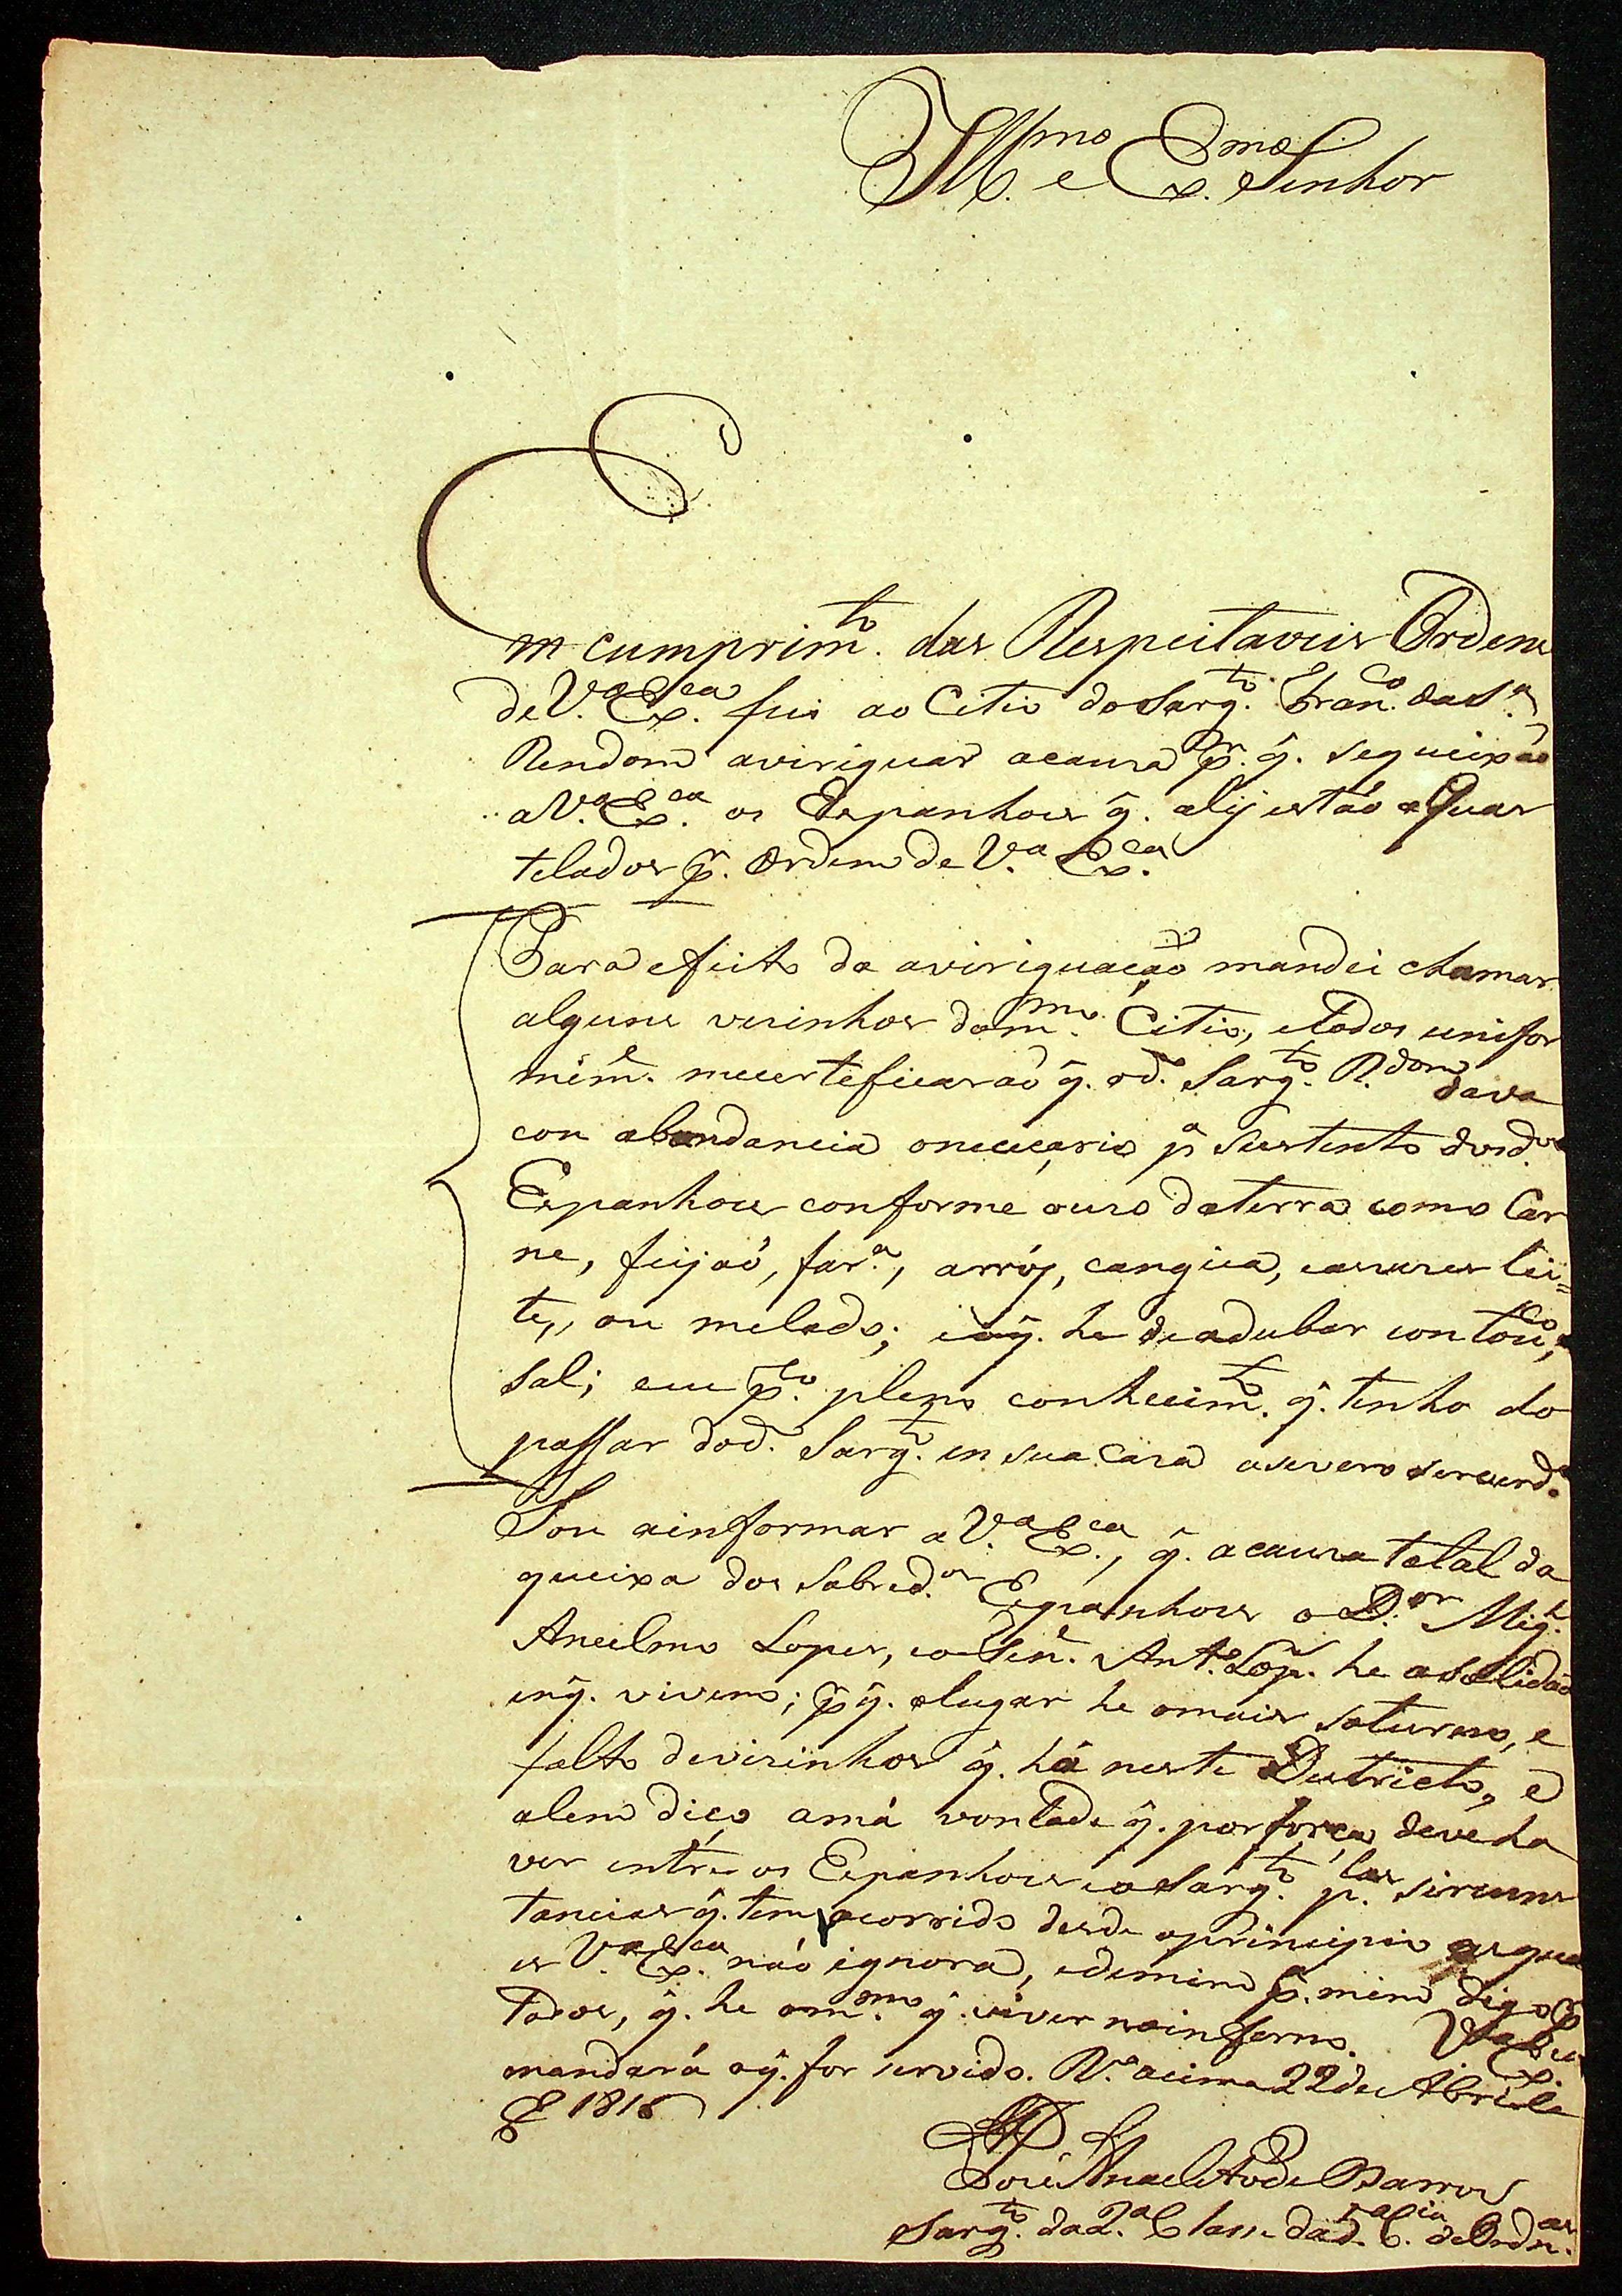 Ill.mo e Ex.mo Senhor
Em cumprim.to das Respeitaveis Ordens
de V.a Ex.ca fui ao Citio do Sarg.to Fran.co da S.a
Rendom aviriguar acauza p.r q̃. sequeixão
aV.a Ex.ca os Espanhois q̃. alij estão aQuar
telados p.r Ordem de V.a Ex.ca
Para efeito da aviriguação mandei chamar
alguns vizinhos dom.mo Citio, etodos unifor
mem.e mecerteficarão q̃. od.o Sarg.to R.dom dava
con abundancia oneceçario p.a Sustento dosd.os
Espanhois conforme ouzo daterra como Car
ne, feijaó, far.a, arróz, cangica, lei=
te, ou melado; eoq̃. he deadubar con touc.o,
Sal; eeu p.lo pleno conhecim.to q̃. tenho do
passar dod.o Sarg.to en sua Caza asevero serverd.e
Sou ainformar aV.a Ex.ca, q̃. acauza total da
queixa dos Sobred.os Espanhois o D.or Mig.l
Ancelmo Lopes, eo Ant.o Lop.s he asolidão
enq̃. vivem; p.r q̃. olugar he omais soturno, e
falto devizinhos q̃. há neste Destricto, e
alem diço amá vontade q̃. porforça deveha
ver entre os Espanhois eoSarg.to p.las sircuns
tancias q̃. tem ocorrido desde oprincipio asqua
es V.a Ex.ca não ignora, p.r mim digo
Todos, q̃. he om.mo q̃. viver noinferno. V.a Ex.ca
mandará oq̃. for servido. R.o acima 22 de Abril
1818
José Anacleto de Barros
Sarg.to da2.a Classe da5.a C.ia deOrdn.as